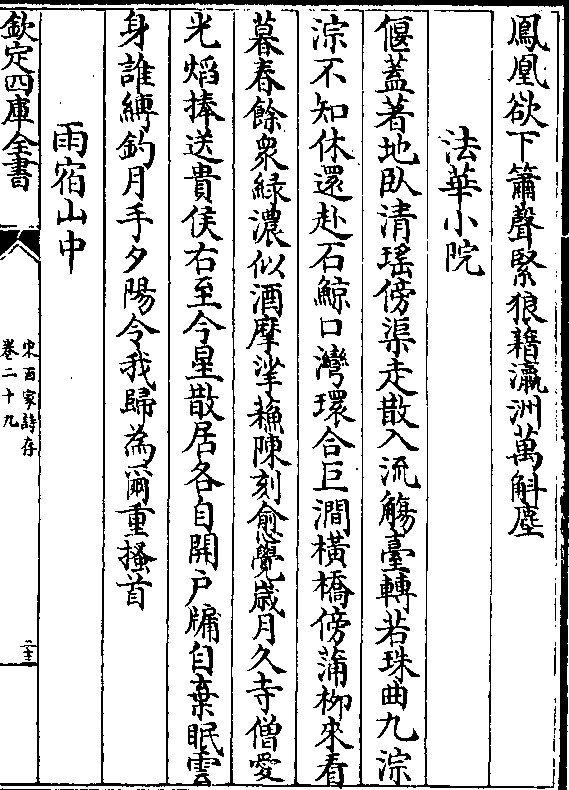 鳳凰欲下簫聲緊狼藉瀛洲萬斛塵
法華小院
偃蓋著地臥清瑤傍渠走散入流觴臺轉若珠曲九淙
淙不知休還赴石鯨口灣環合巨澗橫橋傍蒲柳來看
暮春餘衆綠濃似酒摩挲蘓陳刻愈覺歲月久寺僧愛
光熖捧送貴侯右至今星散居各自開户牖自棄眠雲
身誰縛釣月手夕陽令我歸為爾重搔首
雨宿山中
欽定四庫全書
宋百家詩存
卷二十九
二十三